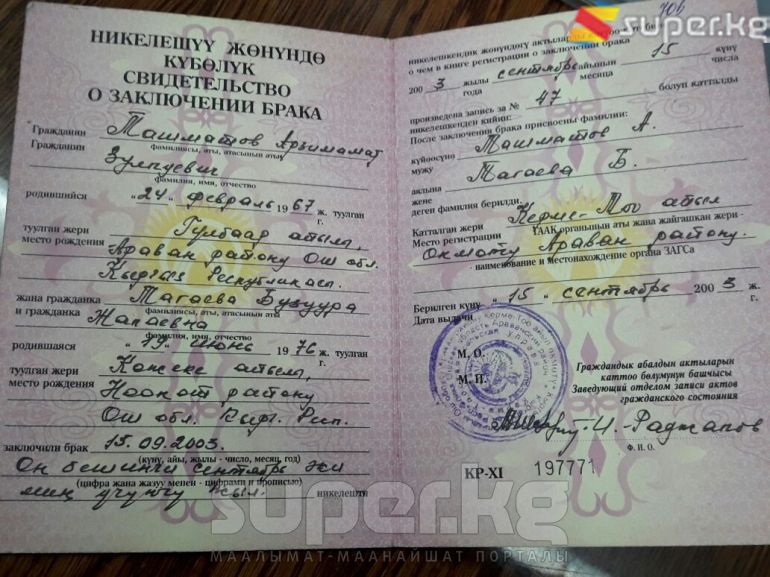 НИКЕЛЕШҮҮ ЖӨНҮНДӨ
КҮБӨЛҮК
СВИДЕТЕЛЬСТВО
О ЗАКЛЮЧЕНИИ БРАКА
Гражданин Ташматов Арзимамат
Гражданин фамилиясы, аты, атасынын аты
Зулпуевич
фамилия, имя, отчество
родившийся "24" февраль 1967 ж. туулган
г.
туулган жери Гулбаар айылы,
место рождения Араван району Ош обл.
Кыргыз Республикасы.
жана гражданка Тагаева Бузуура
и гражданка фамилиясы, аты, атасынын аты
Жапаевна
фамилия, имя, отчество
родившаяся "19" июнь 1976 ж. туулган
г.
туулган жери Кожеке айылы,
место рождения Ноокат району
Ош обл. Кырг. Рес.
заключили брак 15.09.2003.
(күнү, айы, жылы - число, месяц, год)
Он бешинчи сентябрь эки
(цифра жана жазуу менен - цифрами и прописью)
миң үчүнчү жыл. никелешти
706
super.kg
никелешкендик жөнүндөгү актыларды
о чем в книге регистрации о заключении брака
200 3 жылы сентябрь айынын 15 күнү
года месяца числа
произведена запись за № 47 болуп катталды
никелешкенден кийин:
После заключения брака присвоены фамилии:
күйөөсүнө Ташматов А.
мужу
аялына Тагаева Б.
жене
деген фамилия берилди.
Катталган жери Керме-Тоо айыл
Место регистрации ГААК органынын аты жана жайгашкан жери -
Окмоту Араван району.
наименование и местонахождение органа ЗАГСа
Берилген күнү "15" сентябрь 2003 ж.
Дата выдачи г.
М. О.
М. П.
Граждандык абалдын актыларын
каттоо бөлүмүнүн башчысы
Заведующий отделом записи актов
гражданского состояния
И. Раджапов
Ф. И. О.
КР-XI 197771
super.kg
МААЛЫМАТ-МААНАЙШАТ ПОРТАЛЫ